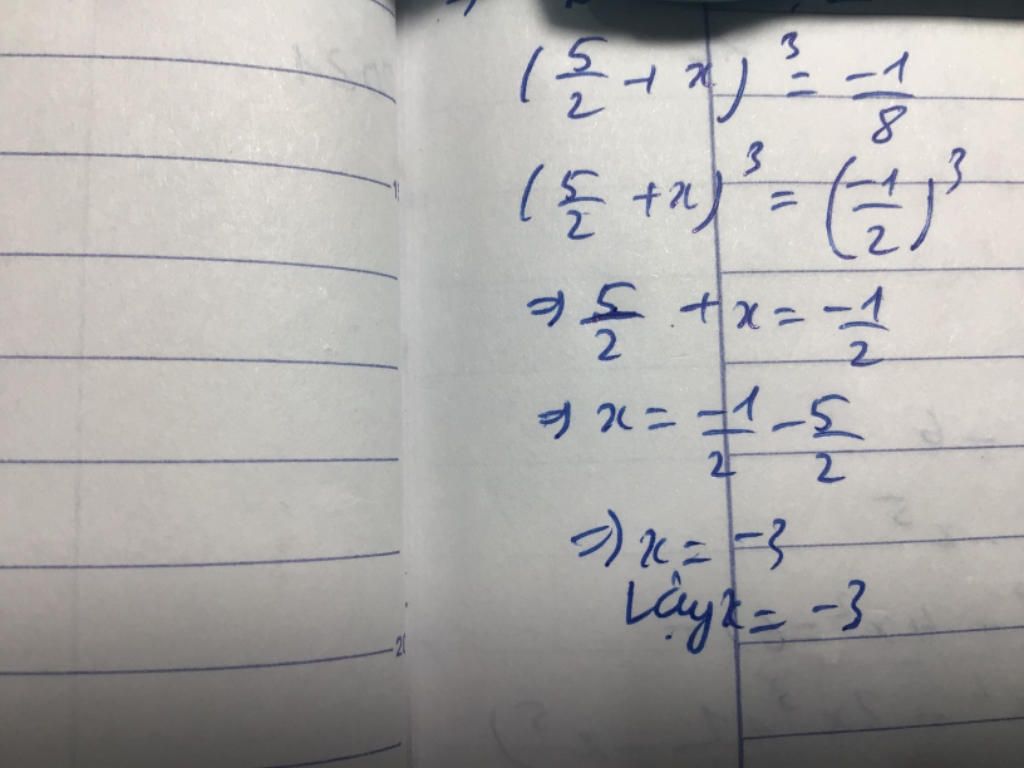 (5/2 + x)³ = -1/8
(5/2 + x)³ = (-1/2)³
⇒ 5/2 + x = -1/2
⇒ x = -1/2 - 5/2
⇒ x = -3
Vậy x = -3